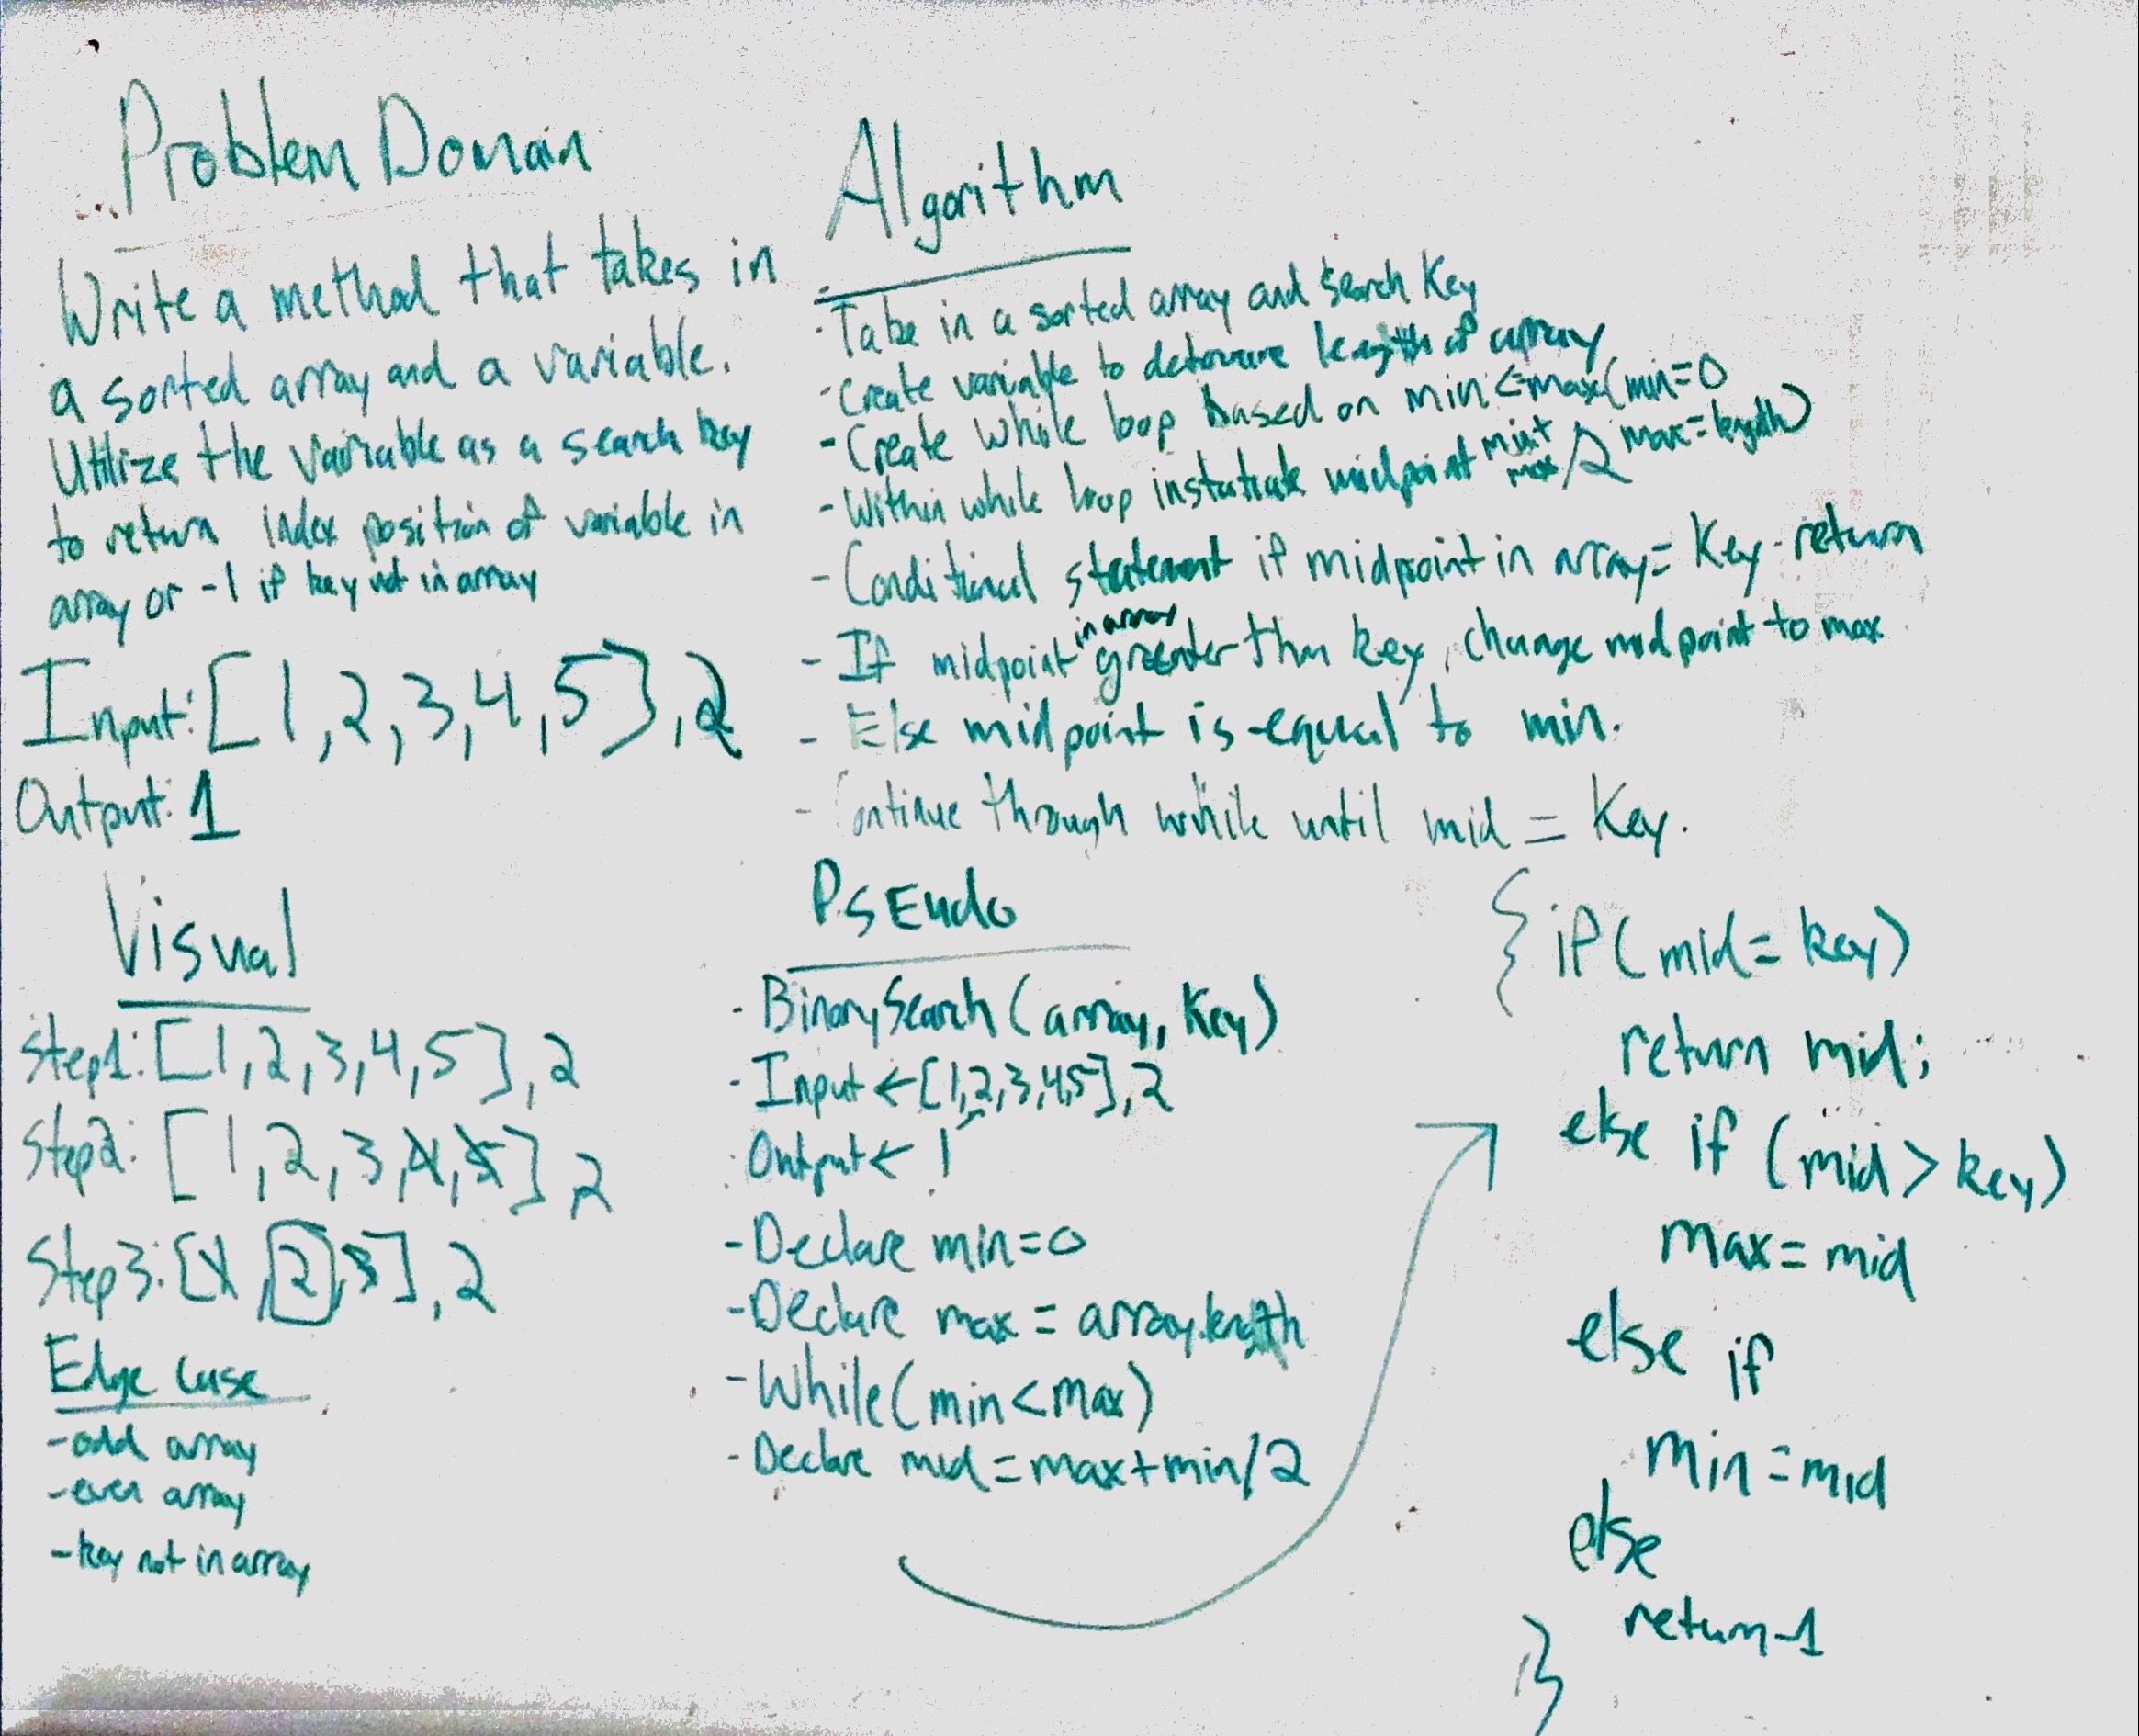 Problem Domain
Write a method that takes in
a sorted array and a variable.
Utilize the variable as a search key
to return index position of variable in
array or -1 if key not in array
Input: [1,2,3,4,5],2
Output: 1
Visual
Step1: [1,2,3,4,5],2
Step2: [1,2,3,4,5],2
Step3: [1,2,3],2
Edge Case
-odd array
-even array
-key not in array
Algorithm
-Take in a sorted array and search key
-Create variable to determine length of array
-Create while loop based on min<=max(min=0
max=length)
-Within while loop instantiate midpoint min+max/2
-Conditional statement if midpoint in array= Key-return
-If midpoint in array greater than key, change midpoint to max
-Else midpoint is equal to min.
-Continue through while until mid = Key.
PSEudo
-BinarySearch(array, Key)
-Input←[1,2,3,4,5],2
-Output← 1
-Declare min=0
-Declare max = array.length
-While(min<max)
-Declare mid=max+min/2
{if(mid=key)
return mid;
else if (mid>key)
max=mid
else if
min=mid
else
return-1
}